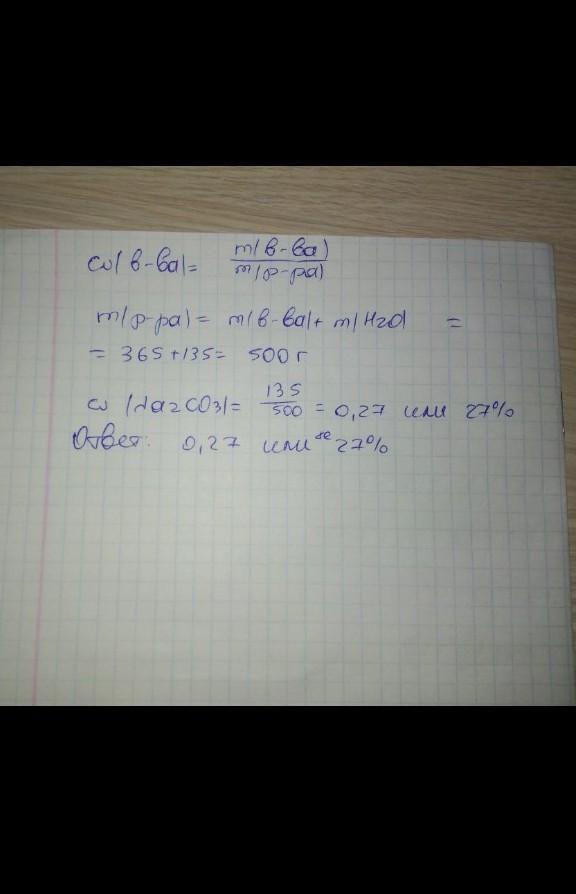 ω(в-ва)= m(в-ва)/m(р-ра)
m(р-ра)= m(в-ва)+ m(H2O) =
= 365+135= 500 г
ω (Na2CO3)= 135/500 = 0,27 или 27%
Ответ: 0,27 или 27%